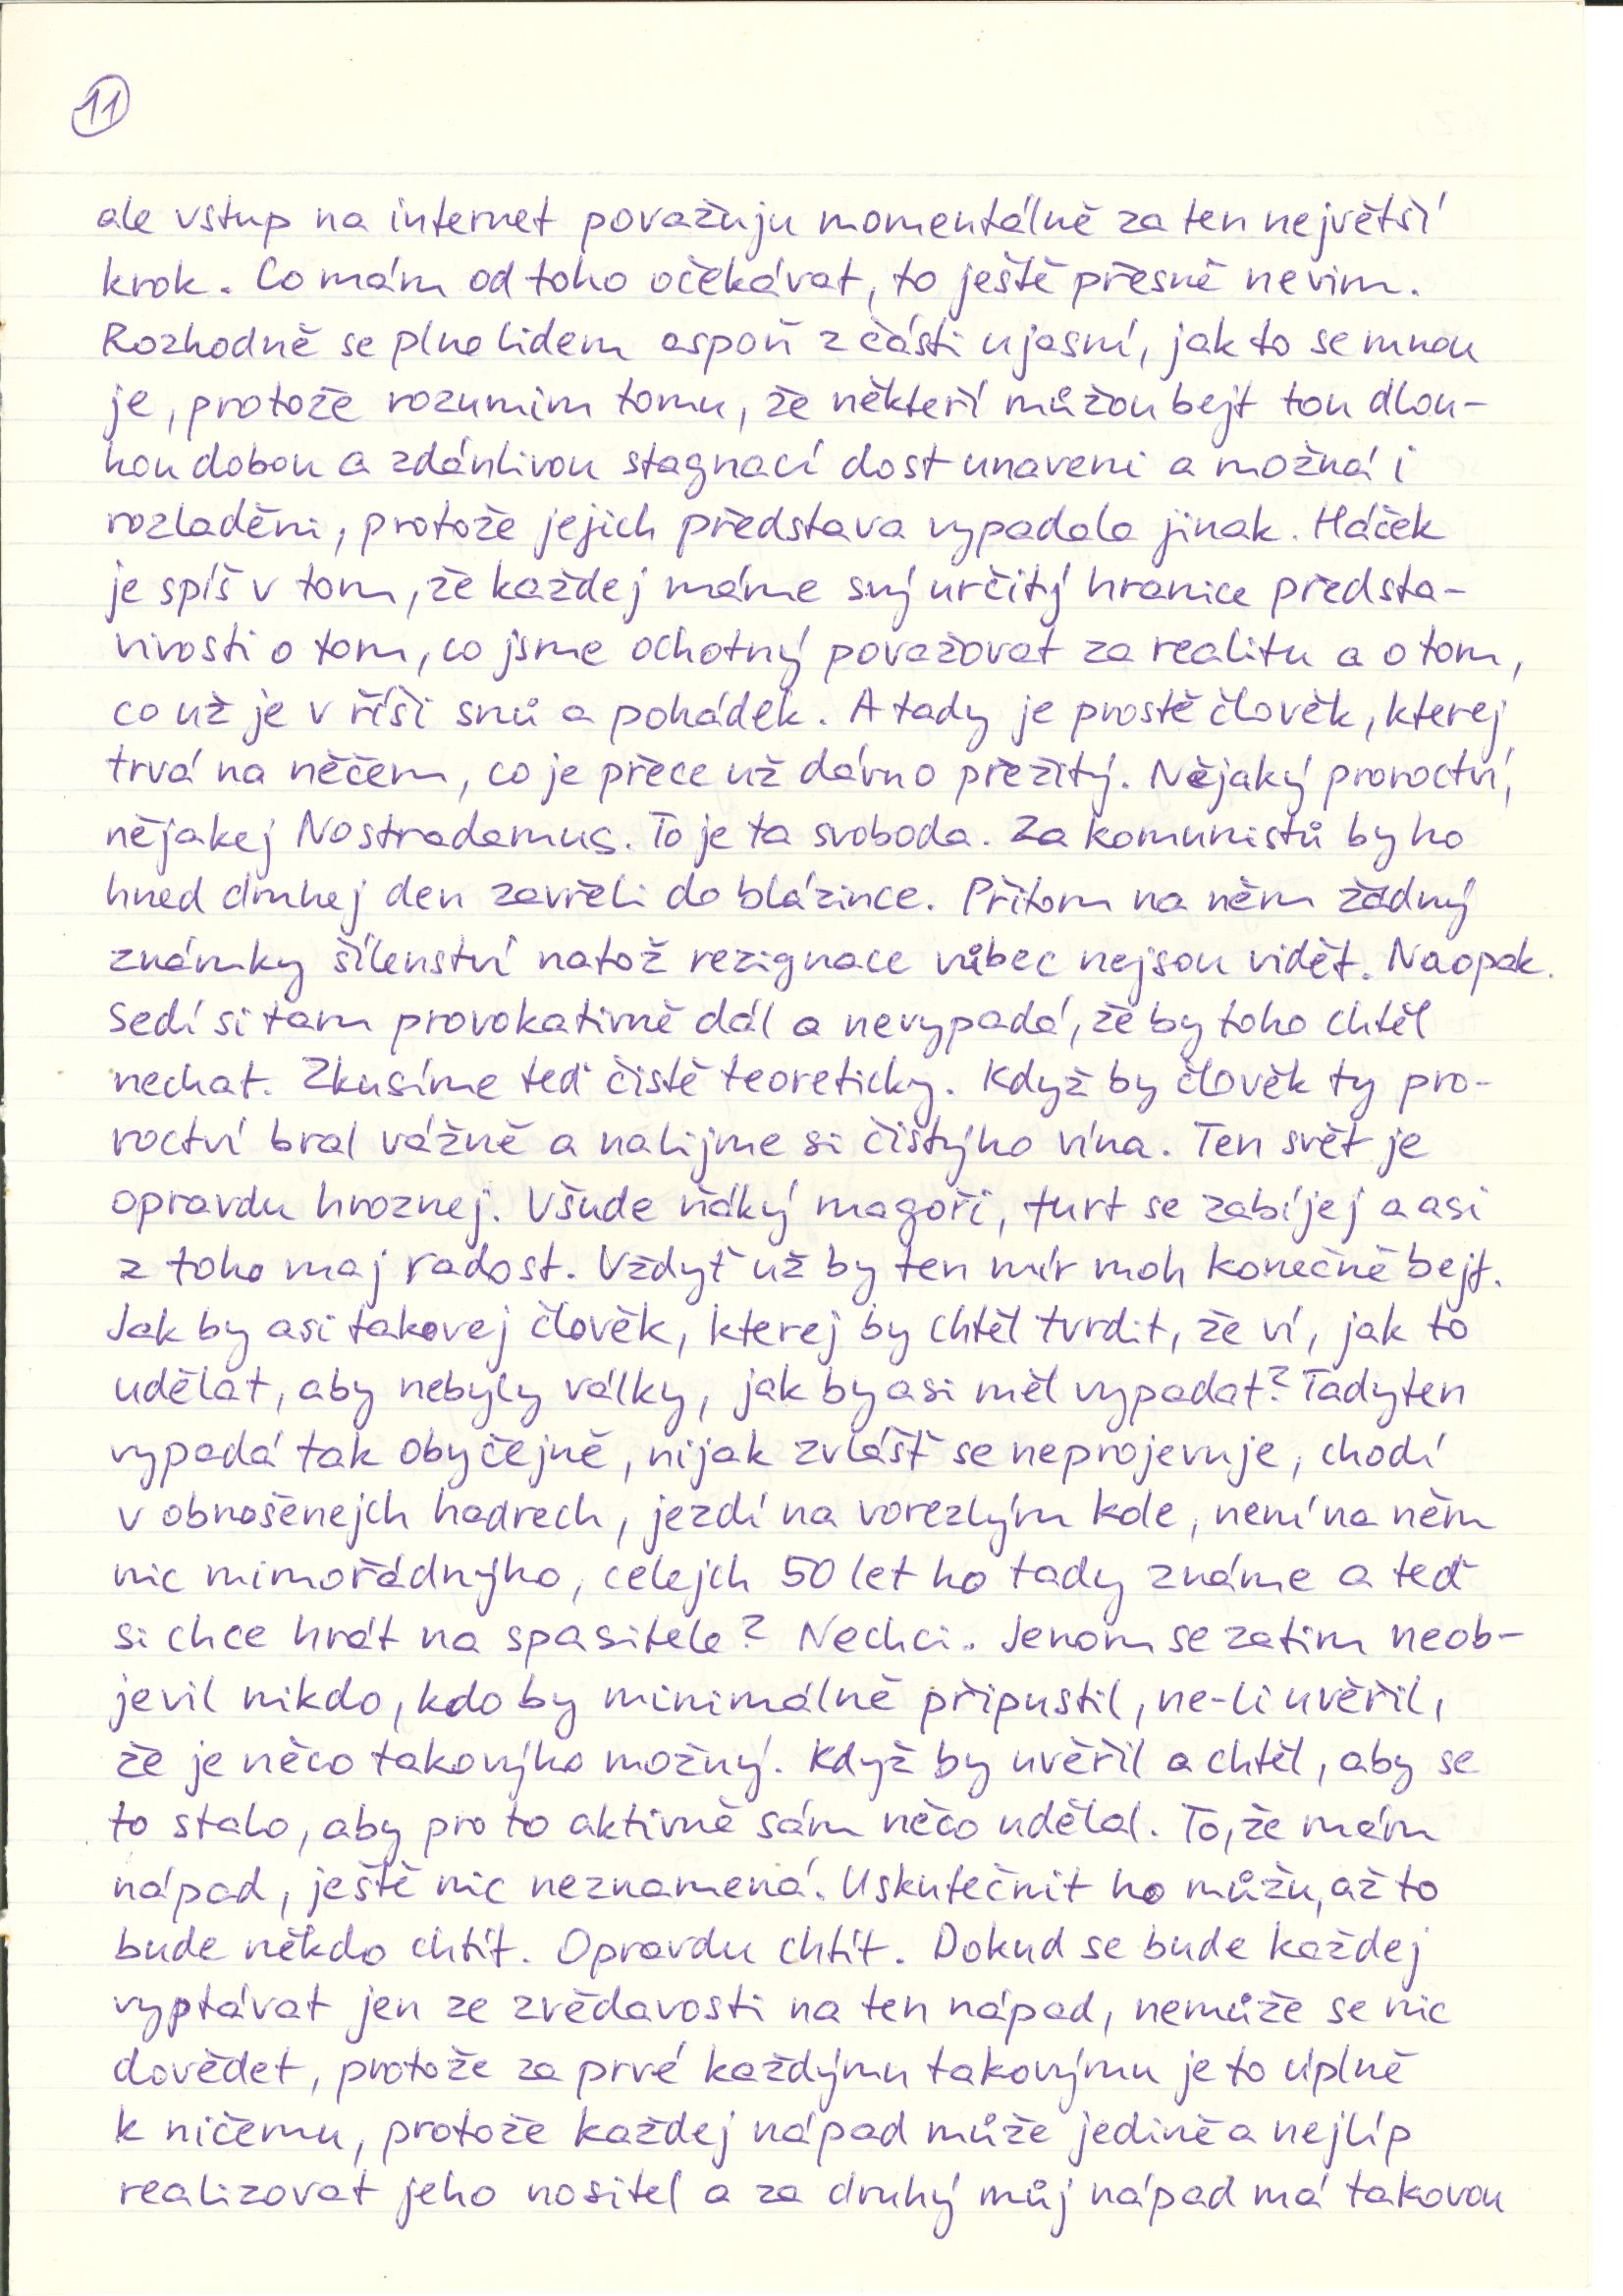 11
ale vstup na internet považuju momentálně za ten největší
krok. Co mám od toho očekávat, to ještě přesně nevim.
Rozhodně se plno lidem aspoň z části ujasní, jak to se mnou
je, protože rozumim tomu, že někteří můžou bejt tou dlou-
hou dobou a zdánlivou stagnací dost unaveni a možná i
rozladěni, protože jejich představa vypadala jinak. Háček
je spíš v tom, že každej máme svý určitý hranice předsta-
vivosti o tom, co jsme ochotný považovat za realitu a o tom,
co už je v říši snů a pohádek. A tady je prostě člověk, kterej
trvá na něčem, co je přece už dávno přežitý. Nějaký proroctví,
nějakej Nostradamus. To je ta svoboda. Za komunistů by ho
hned druhej den zavřeli do blázince. Přitom na něm žádný
známky šílenství natož rezignace vůbec nejsou vidět. Naopak.
Sedí si tam provokativně dál a nevypadá, že by toho chtěl
nechat. Zkusíme teď čistě teoreticky. Když by člověk ty pro-
roctví bral vážně a nalijme si čistýho vína. Ten svět je
opravdu hroznej. Všude ňáký magoři, furt se zabíjej a asi
z toho maj radost. Vždyť už by ten mír moh konečně bejt.
Jak by asi takovej člověk, kterej by chtěl tvrdit, že ví, jak to
udělat, aby nebyly války, jak by asi měl vypadat? Tadyten
vypadá tak obyčejně, nijak zvlášť se neprojevuje, chodí
v obnošenejch hadrech, jezdí na vorezlým kole, není na něm
nic mimořádnýho, celejch 50 let ho tady známe a teď
si chce hrát na spasitele? Nechci. Jenom se zatim neob-
jevil nikdo, kdo by minimálně připustil, ne-li uvěřil,
že je něco takovýho možný. Když by uvěřil a chtěl, aby se
to stalo, aby pro to aktivně sám něco udělal. To, že mám
nápad, ještě nic neznamená. Uskutečnit ho můžu, až to
bude někdo chtít. Opravdu chtít. Dokud se bude každej
vyptávat jen ze zvědavosti na ten nápad, nemůže se nic
dovědet, protože za prvé každýmu takovýmu je to úplně
k ničemu, protože každej nápad může jedině a nejlíp
realizovat jeho nositel a za druhý můj nápad má takovou